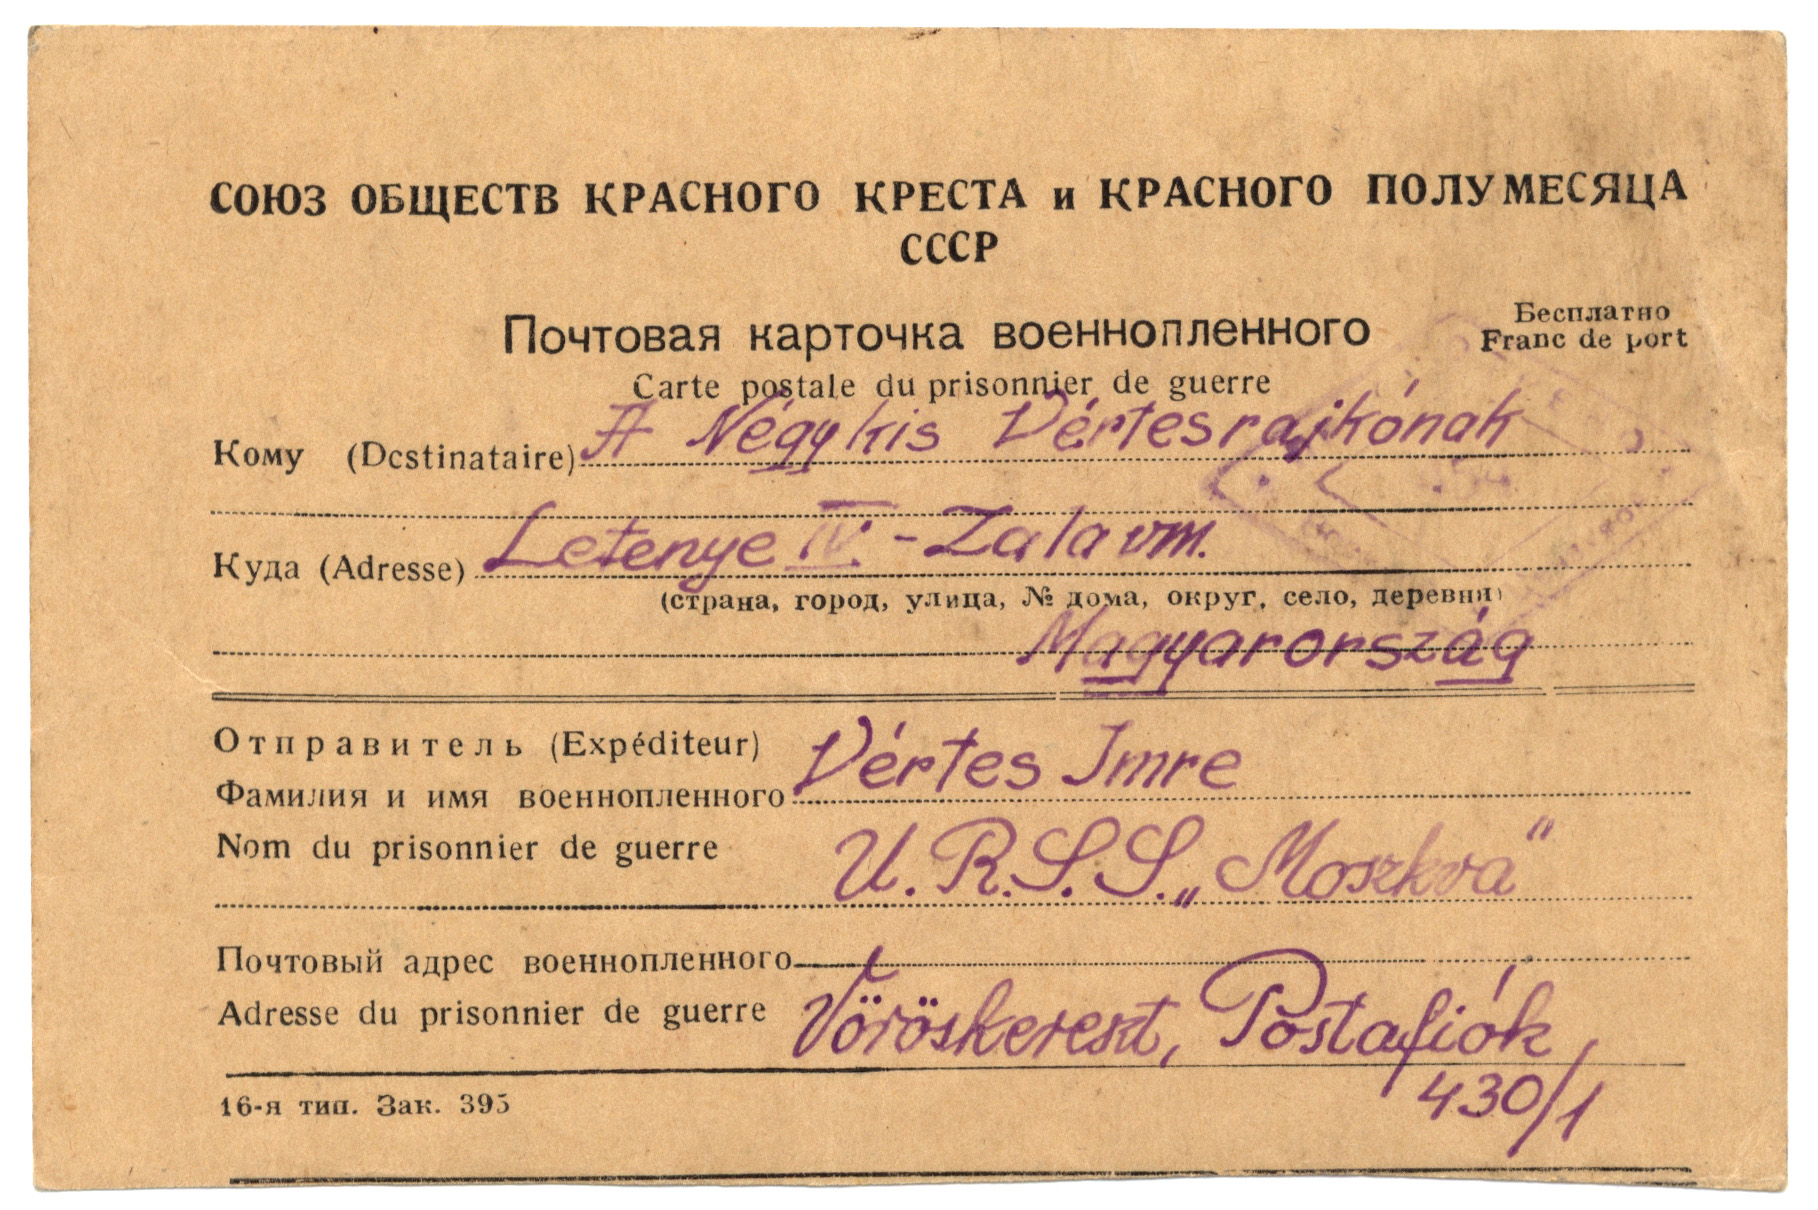 СОЮЗ ОБЩЕСТВ КРАСНОГО КРЕСТА и КРАСНОГО ПОЛУМЕСЯЦА
СССР
Почтовая карточка военнопленного
Бесплатно
Franc de port
Carte postale du prisonnier de guerre
Кому (Destinataire) A Négy kis Vértesrajkónak
Куда (Adresse) Letenye IV. - Zala vm.
(страна, город, улица, № дома, округ, село, деревня)
Magyarország
Отправитель (Expéditeur)
Фамилия и имя военнопленного Vértes Imre
Nom du prisonnier de guerre
U.R.S.S. „Moszkva"
Почтовый адрес военнопленного
Adresse du prisonnier de guerre Vöröskereszt, Postafiók
430/1
16-я тип. Зак. 395